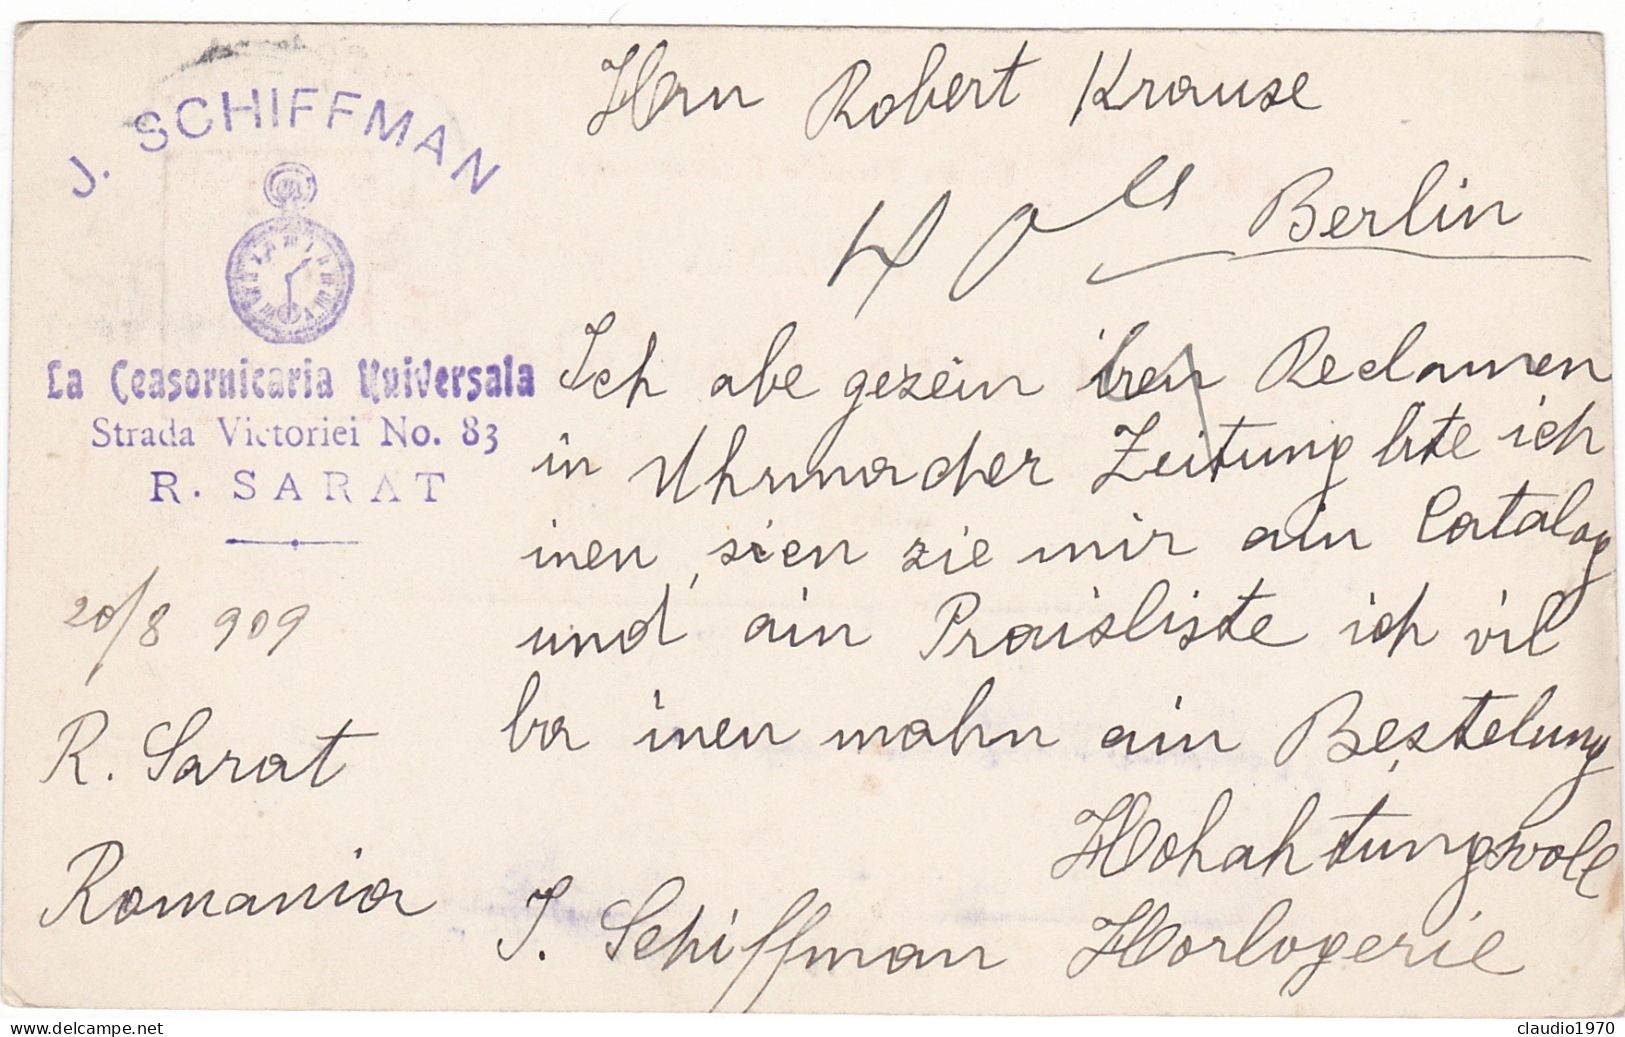 J. SCHIFFMAN
La Ceasornicaria Universala
Strada Victoriei No. 83
R. SARAT
20/8 909
R. Sarat
Romania
Herrn Robert Krause
Berlin
Ich abe gezein iren Reclamen
in Uhrmacher Zeitung bite ich
inen, sien zie mir ain Catalog
und ain Praisliste ich vil
ba inen mahn ain Bestelung
Hohahtungsvoll
J. Schiffman Horlogerie
claudio1970